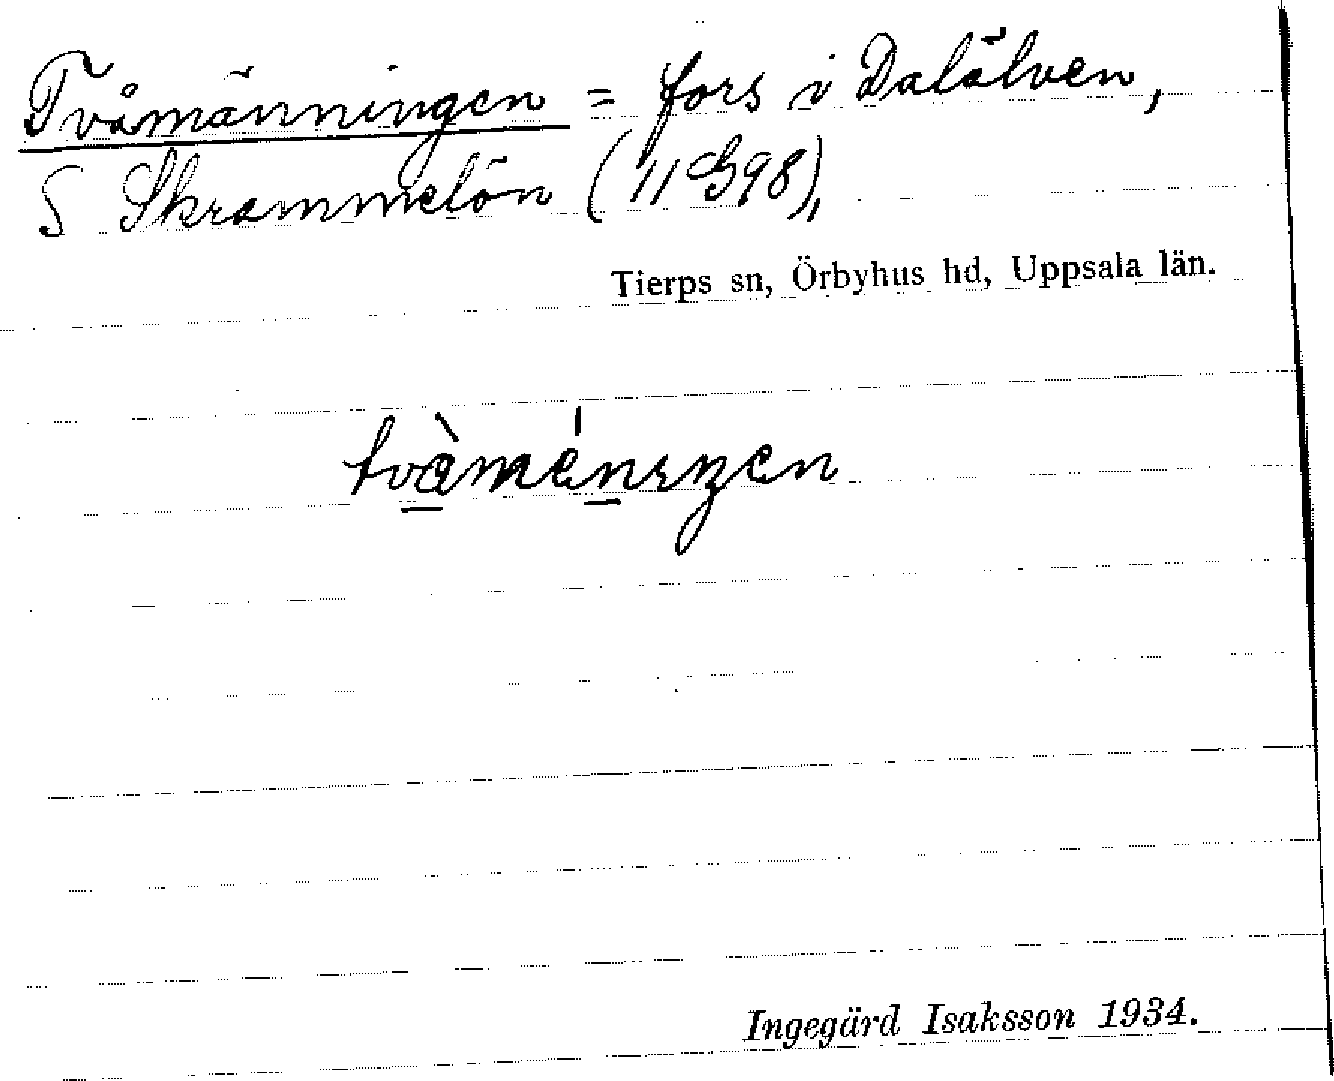 Tvåmänningen = fors i Dalälven,
S Skrammelön (11 G 98),
Tierps sn, Örbyhus hd, Uppsala län.
Ingegärd Isaksson 1934.